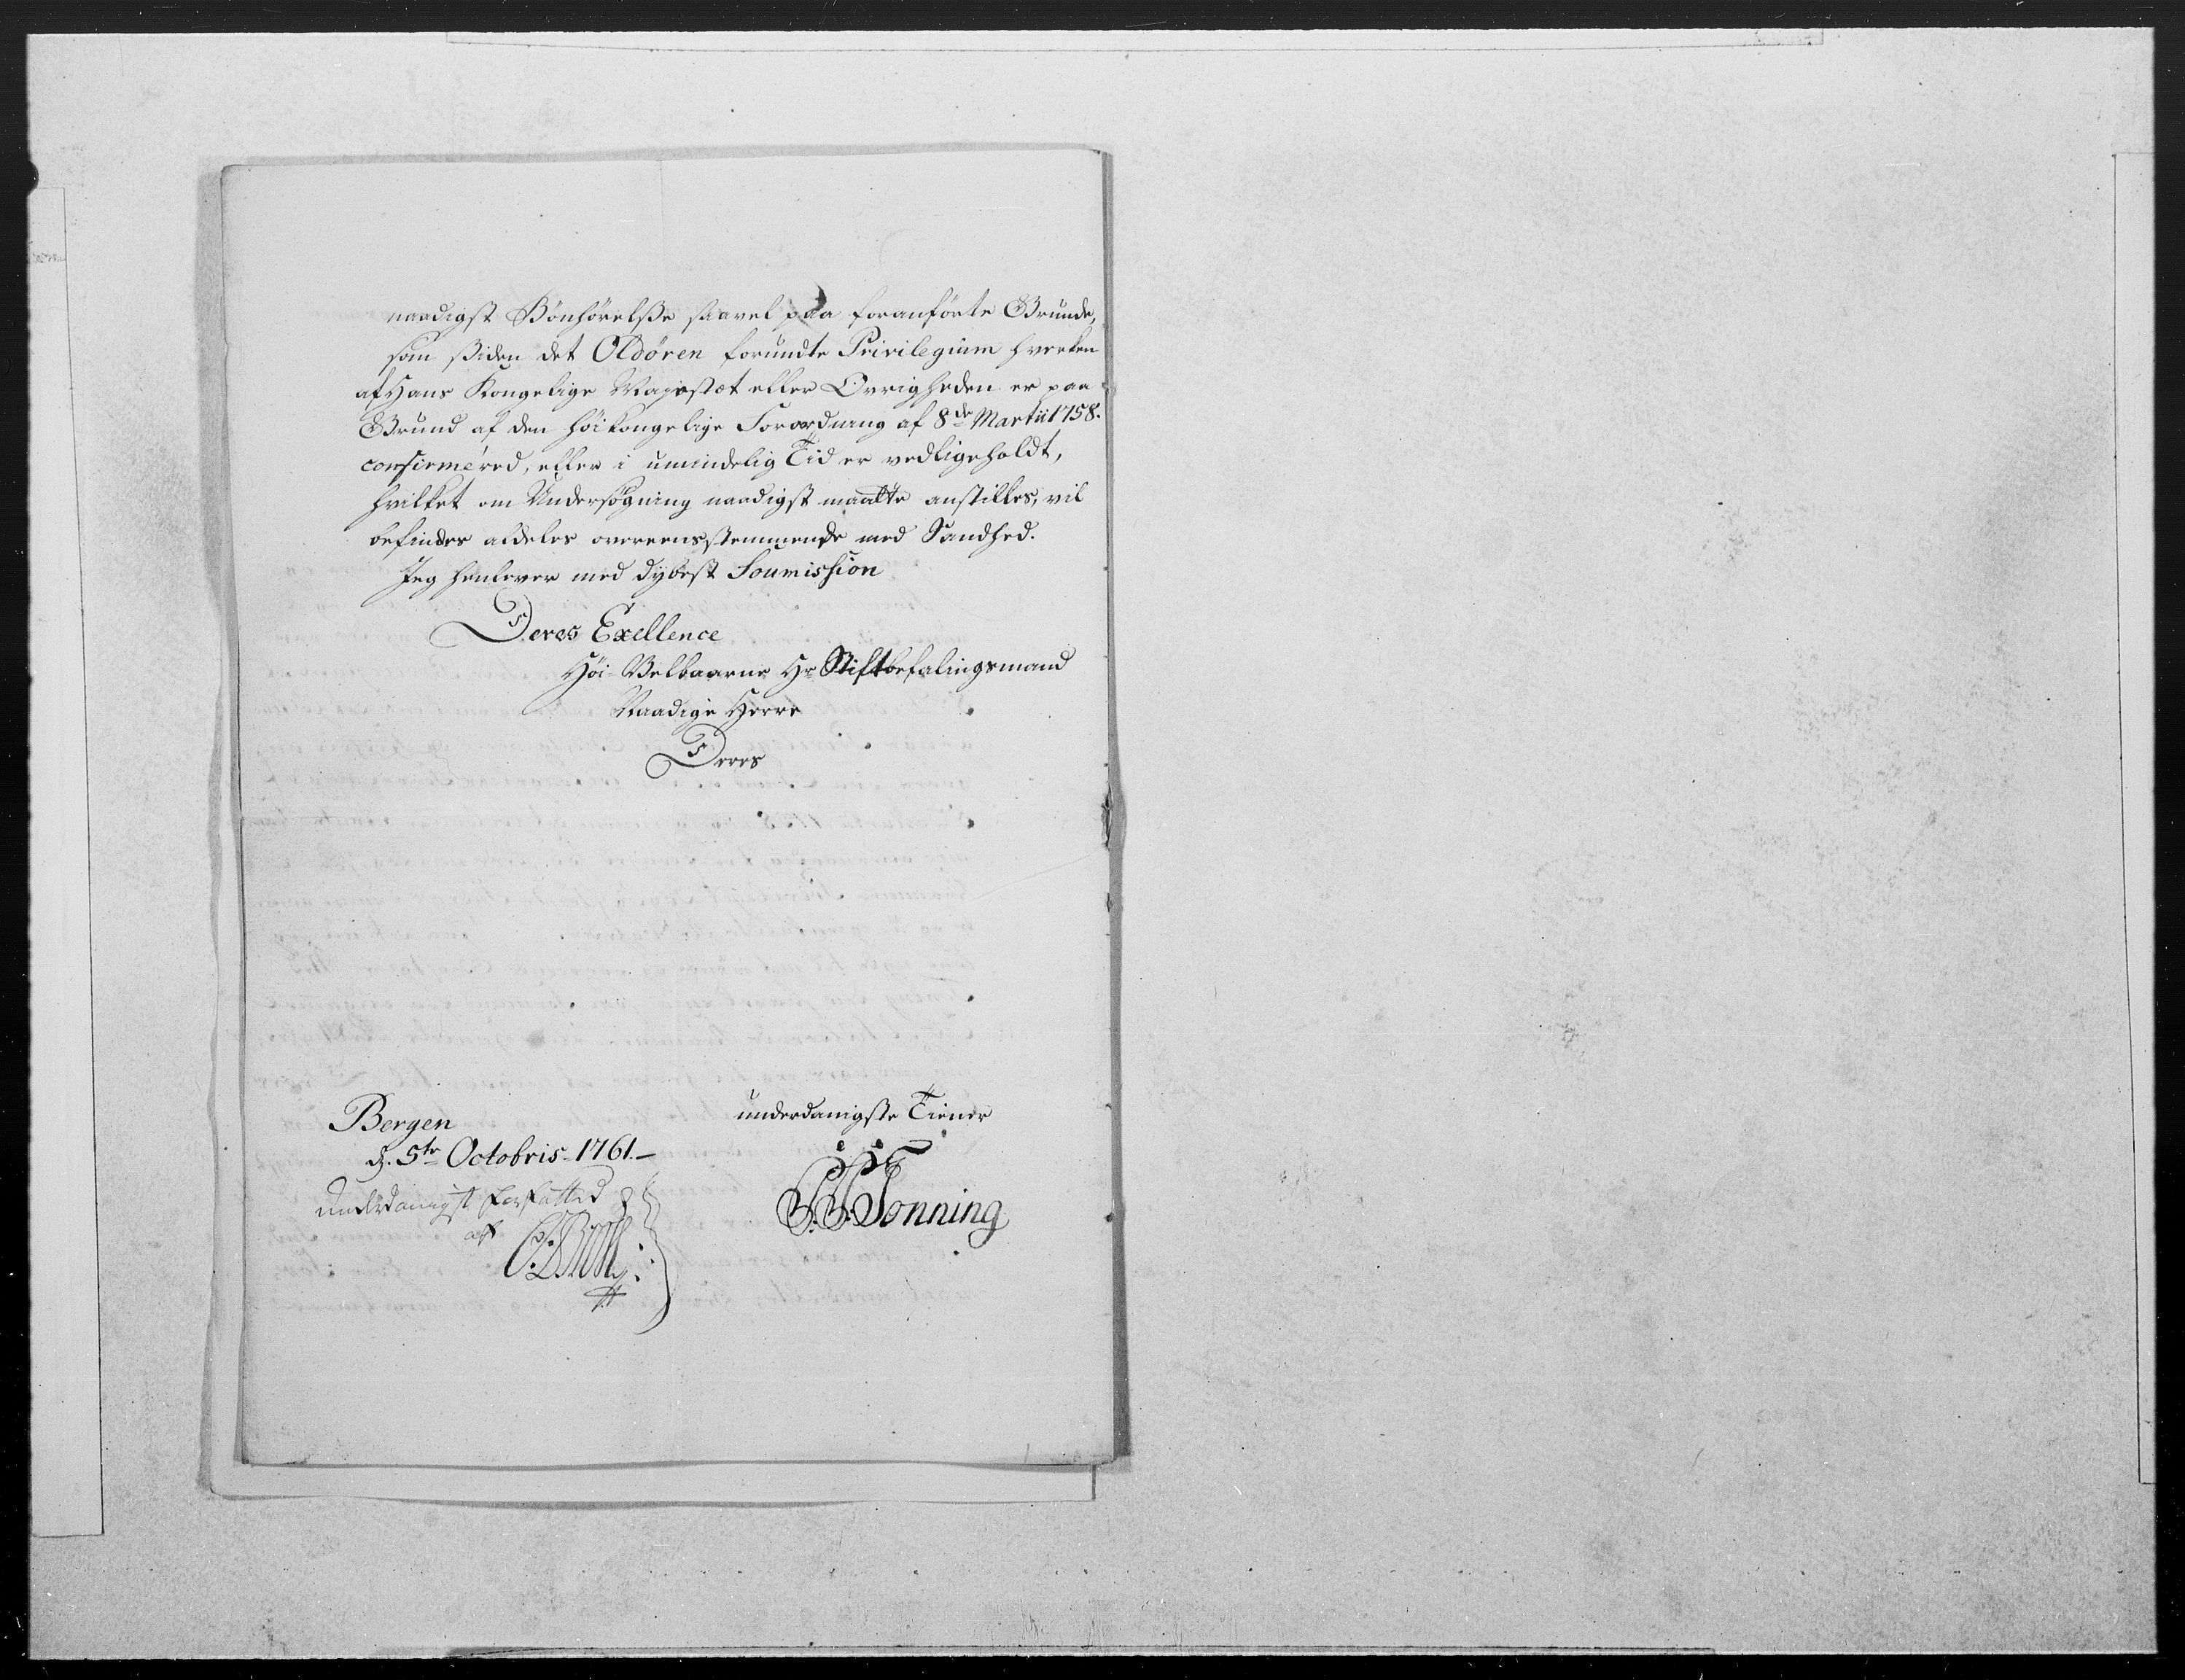 naadigst Bönhörelse saavel paa foranförte Grunde,
som siden det Oldøren forundte Privilegium hverken
af Hans Kongelige Mayestæt eller Øvrigheden er paa
Grund af den höikongelige Forordning af 8de Martii 1758.
confirmèred, eller i umindelig Tid er vedligeholdt,
hvilket om Undersögning naadigst maatte anstilles, vil
befindes aldeles overeensstemmende med Sandhed.
Jeg henlever med dybest Soumission
Deres Exellence
Höi-Velbaarne Hr Stiftbefalingsmand
Naadige Herre
Deres
underdanigste Tiener
Bergen
d. 5te Octobris 1761.
Tonning
underdanigst forfatted
af